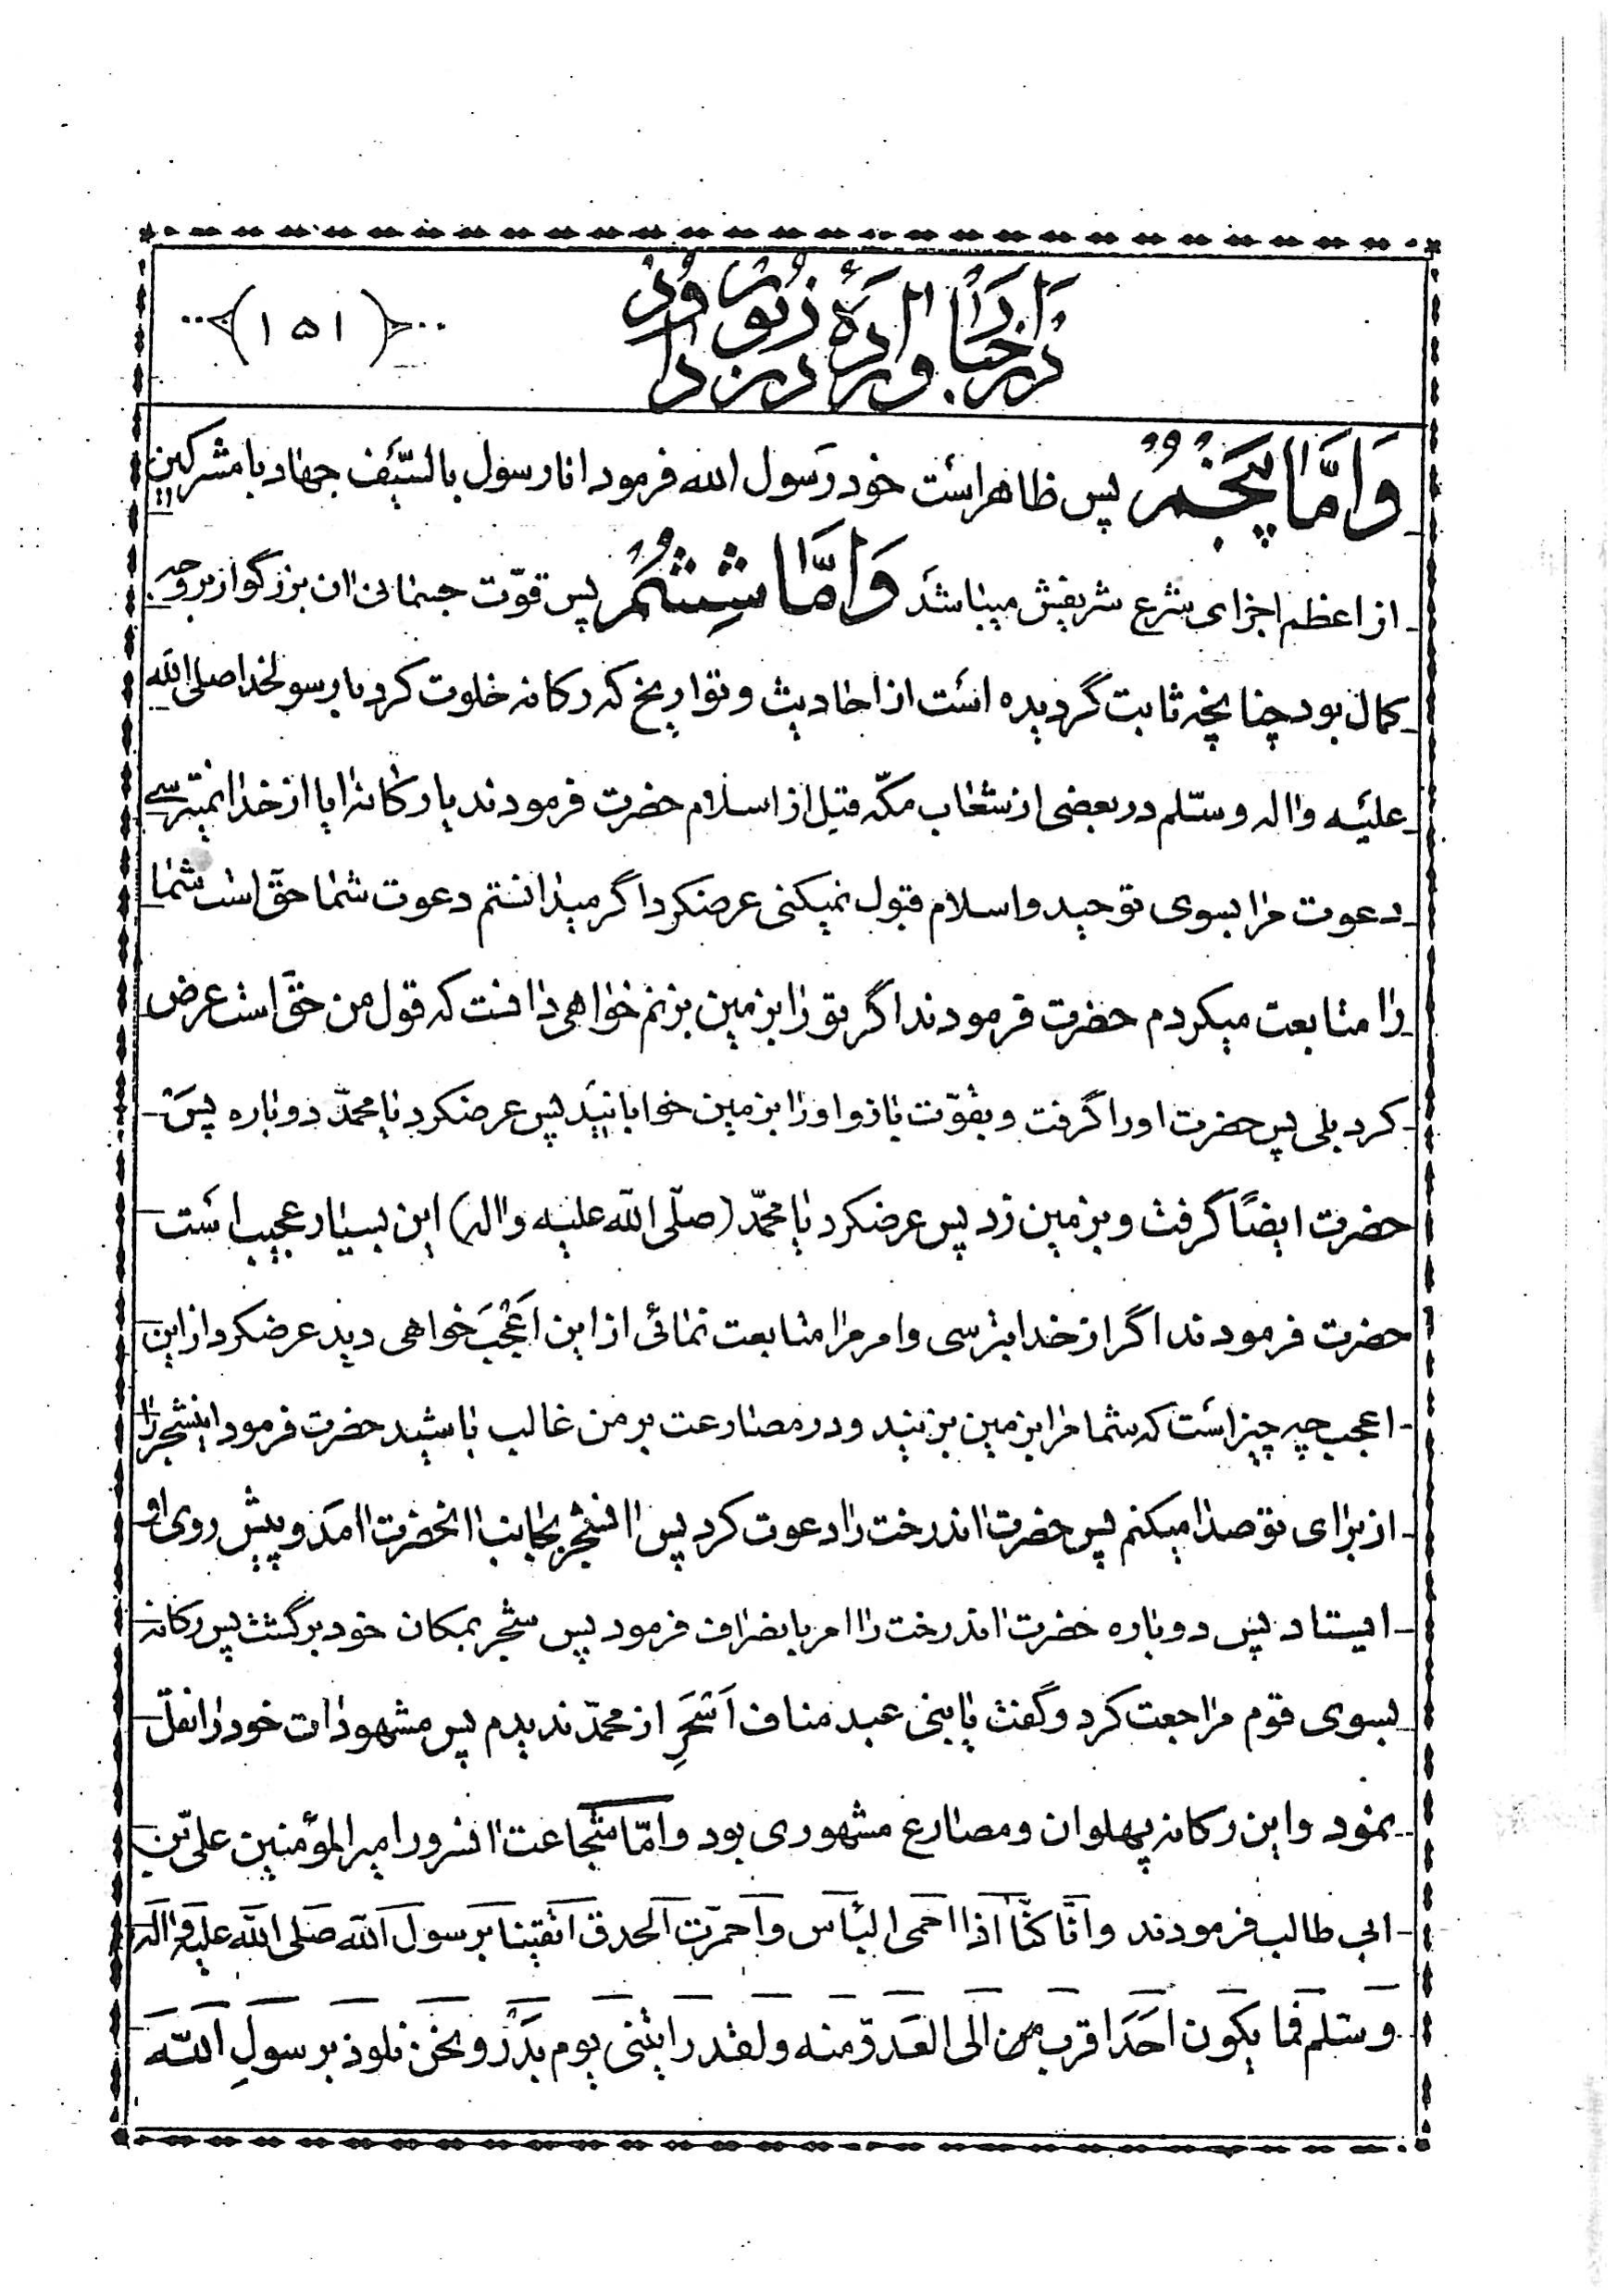 در اخبار وارده در زبور داود
(١٥١)
وَامَّا پنجُمُ پس ظاهر است خود رَسول الله فرمود انا رسول بالسّيف جهاد با مشركين
از اعظم اجزاى شرع شريفش ميباشد وَامَّا شِشُم پس قوّت جسمانى ان بزرگوار بر وجه
كمال بود چنانچه ثابت گرديده است از احاديث وتواريخ كه ركانه خلوت كرد با رسولخدا صلى الله
عليه واله وسلّم در بعضى از شعاب مكّه قبل از اسلام حضرت فرمودند يا ركانه ايا از خدا نميترسى
دعوت مرا بسوى توحيد واسلام قبول نميكنى عرضكرد اگر ميدانستم دعوت شما حقّ است شما
را متابعت ميكردم حضرت فرمودند اگر تو را بزمين بزنم خواهى دانست كه قول من حقّ است عرض
كرد بلى پس حضرت او را گرفت وبقوّت بازو او را بزمين خوابانيد پس عرضكرد يا محمدّ دوباره پس
حضرت ايضًا گرفت وبزمين زد پس عرضكرد يا محمّد (صلّى الله عليه واله) اين بسيار عجيب است
حضرت فرمودند اگر از خدا بترسى وامر مرا متابعت نمائى از اين اَعْجَبَ خواهى ديد عرضكرد از اين
اعجب چه چيز است كه شما مرا بزمين بزنيد ودر مصارعت بر من غالب باشيد حضرت فرمود اينشجر را
از براى تو صدا ميكنم پس حضرت اندرخت را دعوت كرد پس انشجر بجانب انحضرت امد و پيش روى او
ايستاد پس دوباره حضرت اندرخت را امر بانصراف فرمود پس شجر بمكان خود برگشت پس ركانه
بسوى قوم مراجعت كرد وگفت يا بنى عبد مناف اَسْحَرِ از محمدّ نديدم پس مشهودات خود را نقل
نمود واين ركانه پهلوان ومصارع مشهورى بود وامّا شجاعت انسرور امير المؤمنين على بن
ابى طالب فرمودند وانّا كنّا اذا احمى البأس واحمرّت الحدق اتقينا برسول الله صلى الله عليه واله
وسلم فما يكون احَدَ اقرب من الى العَدوّ منه ولقد رايتنى يوم بَدْر ونحن نلوذ برسولِ الله